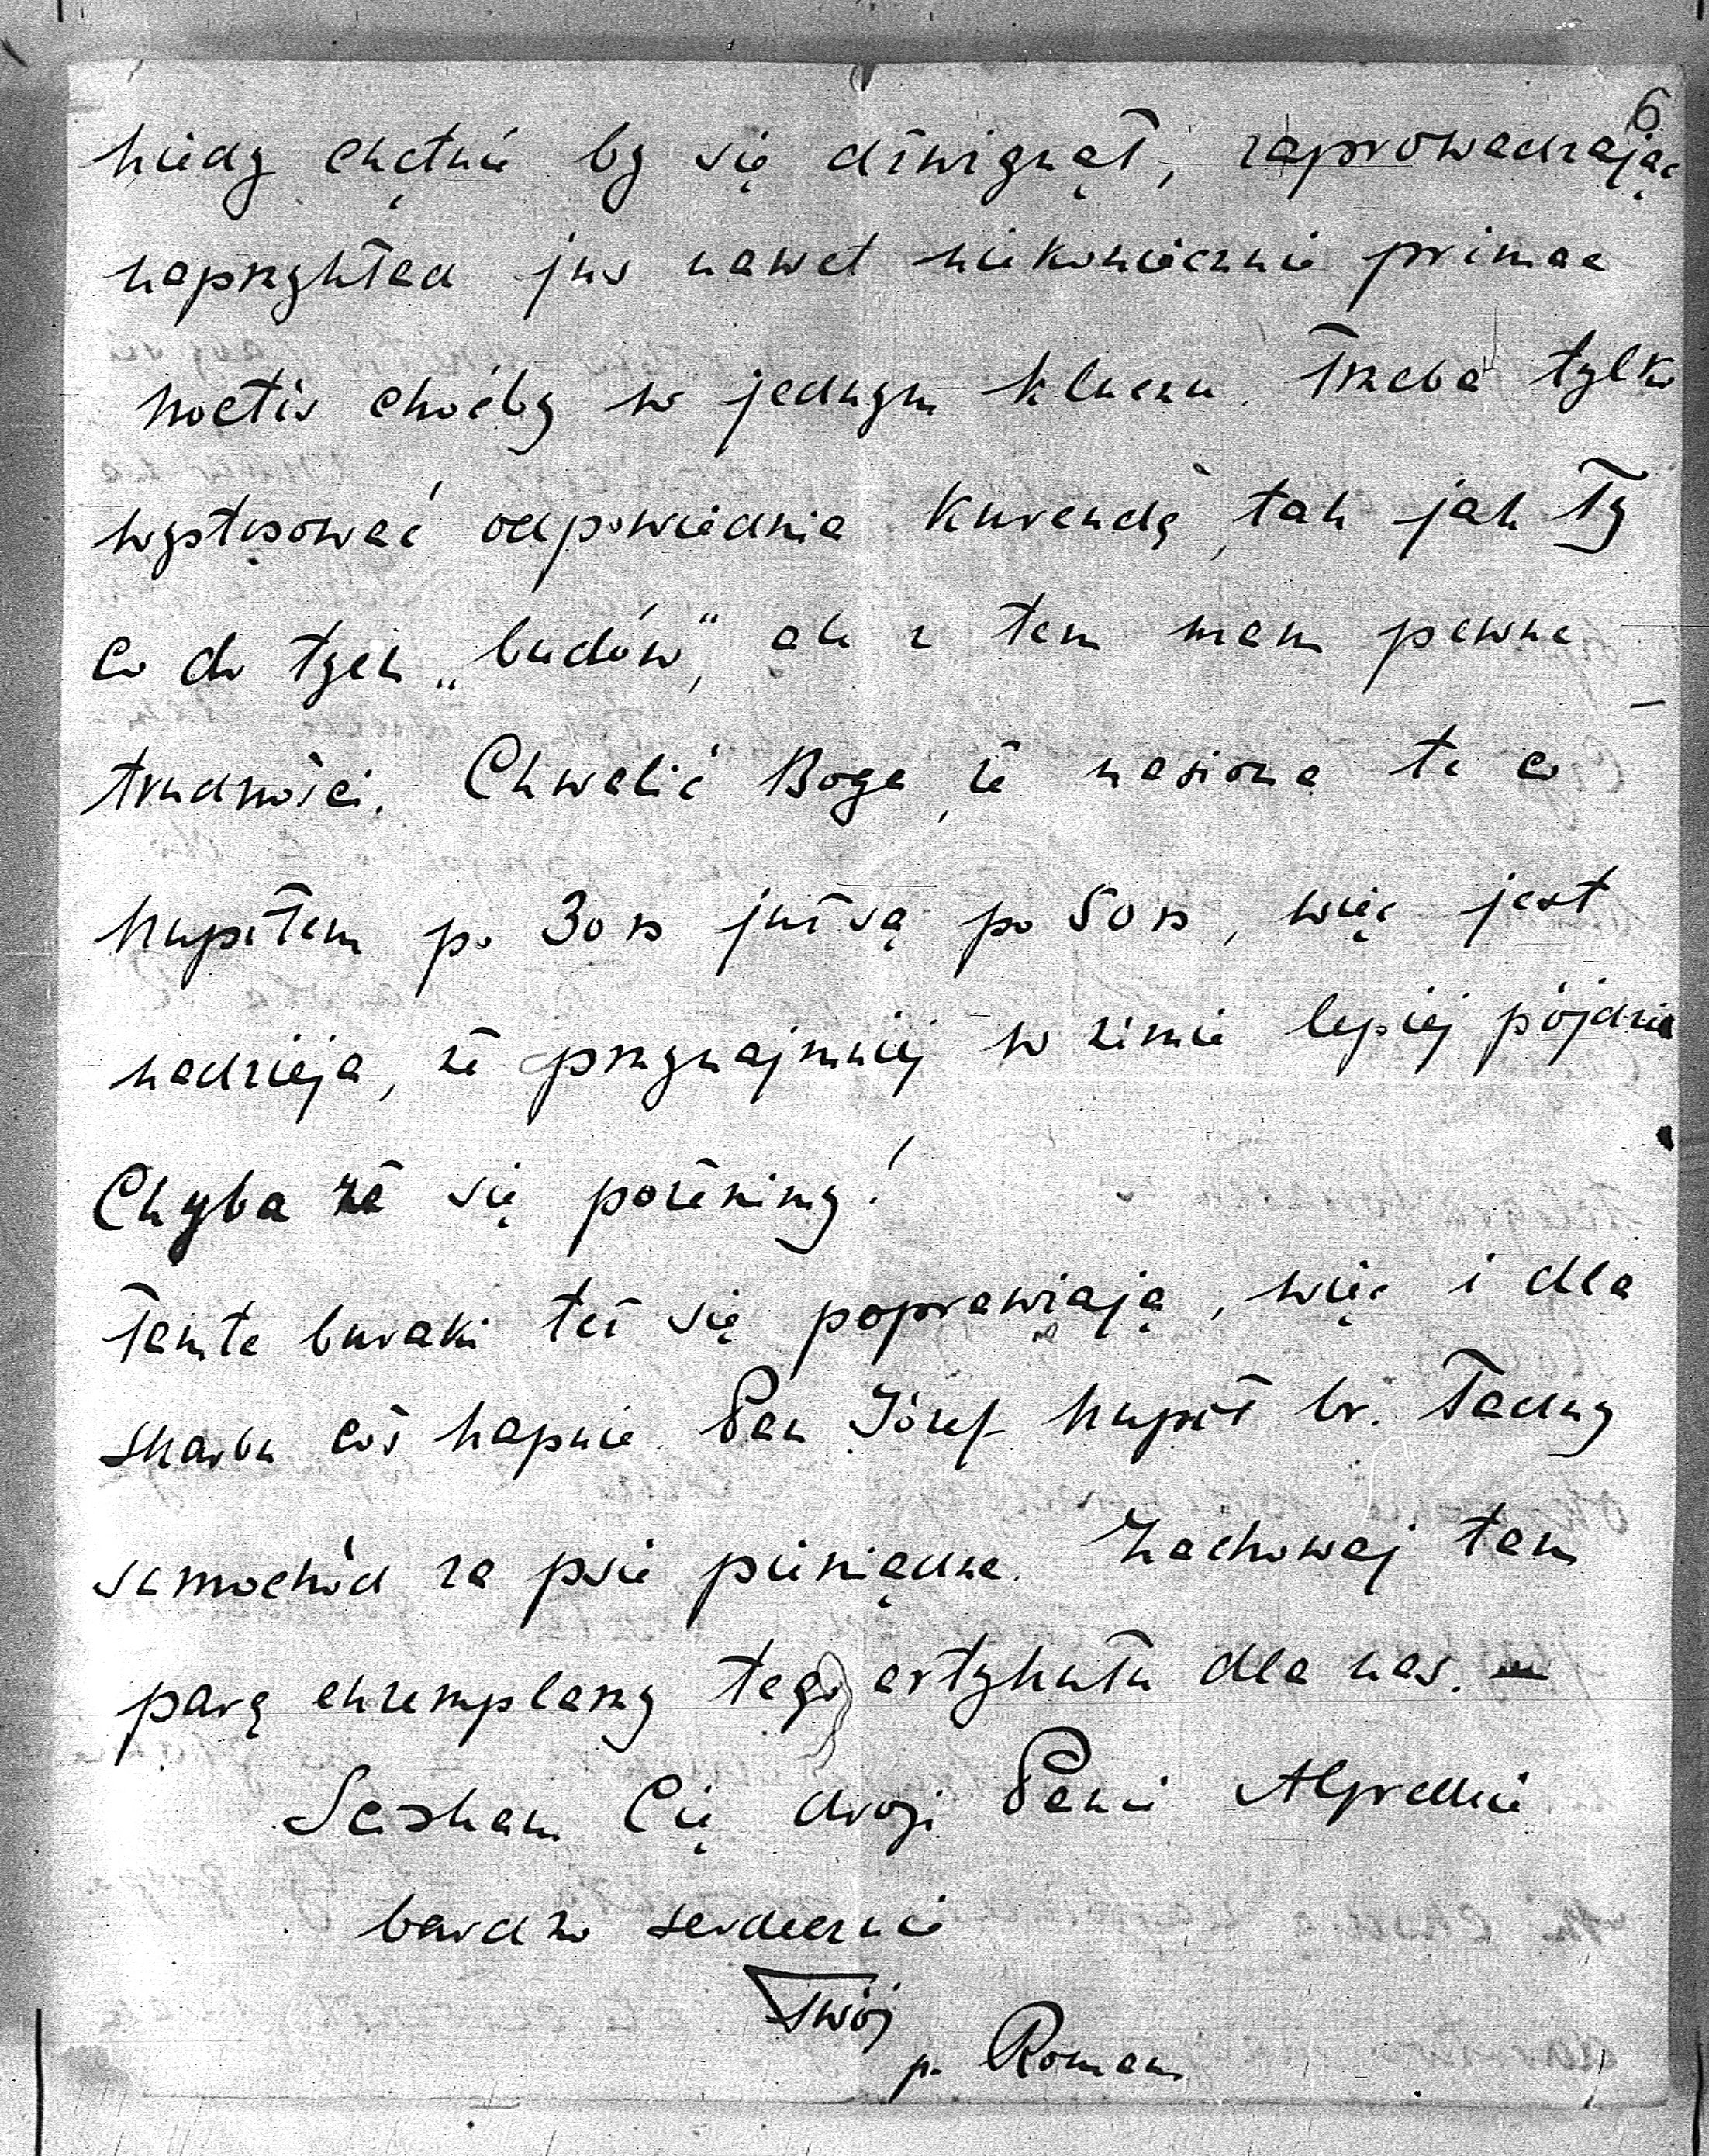 6
kiedy chętnie by się dźwignął, zaprowadzając
naprzykład jus nawet niekoniecznie primae
noctis choćby w jednym kluczu. Trzeba tylko
wystosować odpowiednią kurendę, tak jak Ty
co do tych „budów", ale z tem mam pewne
trudności. Chwalić Boga, że nasiona te co
kupiłem po 30 są już po 50, więc jest
nadzieja, że przynajmniej w zimie lepiej pójdzie
Chyba że się pożenimy!
Tamte buraki też się poprawiają, więc i dla
skarbu coś kapnie. Pan Józef kupił br. ładny
samochód za psie pieniądze. Zachowaj tam
parę egzemplarzy tego artykułu dla nas. —
Ściskam Cię drogi Panie Alfredzie
bardzo serdecznie
Twój
p. Roman